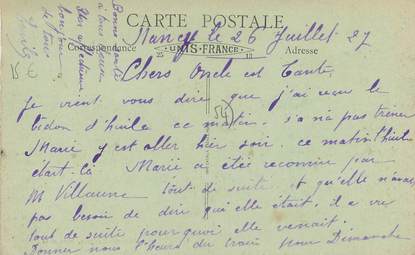 CARTE POSTALE
Correspondance
UNIS-FRANCE
Adresse
Nancy le 26 Juillet 27
Chers Oncle est Tante,
Je vient vous dire que j'ai reçu le
bidon d'huile ce matin. sa n'a pas trainer
Marie y est aller hier soir ce matin l'huile
était-là Marie a étée reconnue par
M Villaume tout de suite et qu'elle n'avais
pas besoin de dire qui elle était. il a vu
tout de suite pourquoi elle venait.
Donner nous l'heure du train pour Dimanche
Bonne santé
à tous deux
(54)